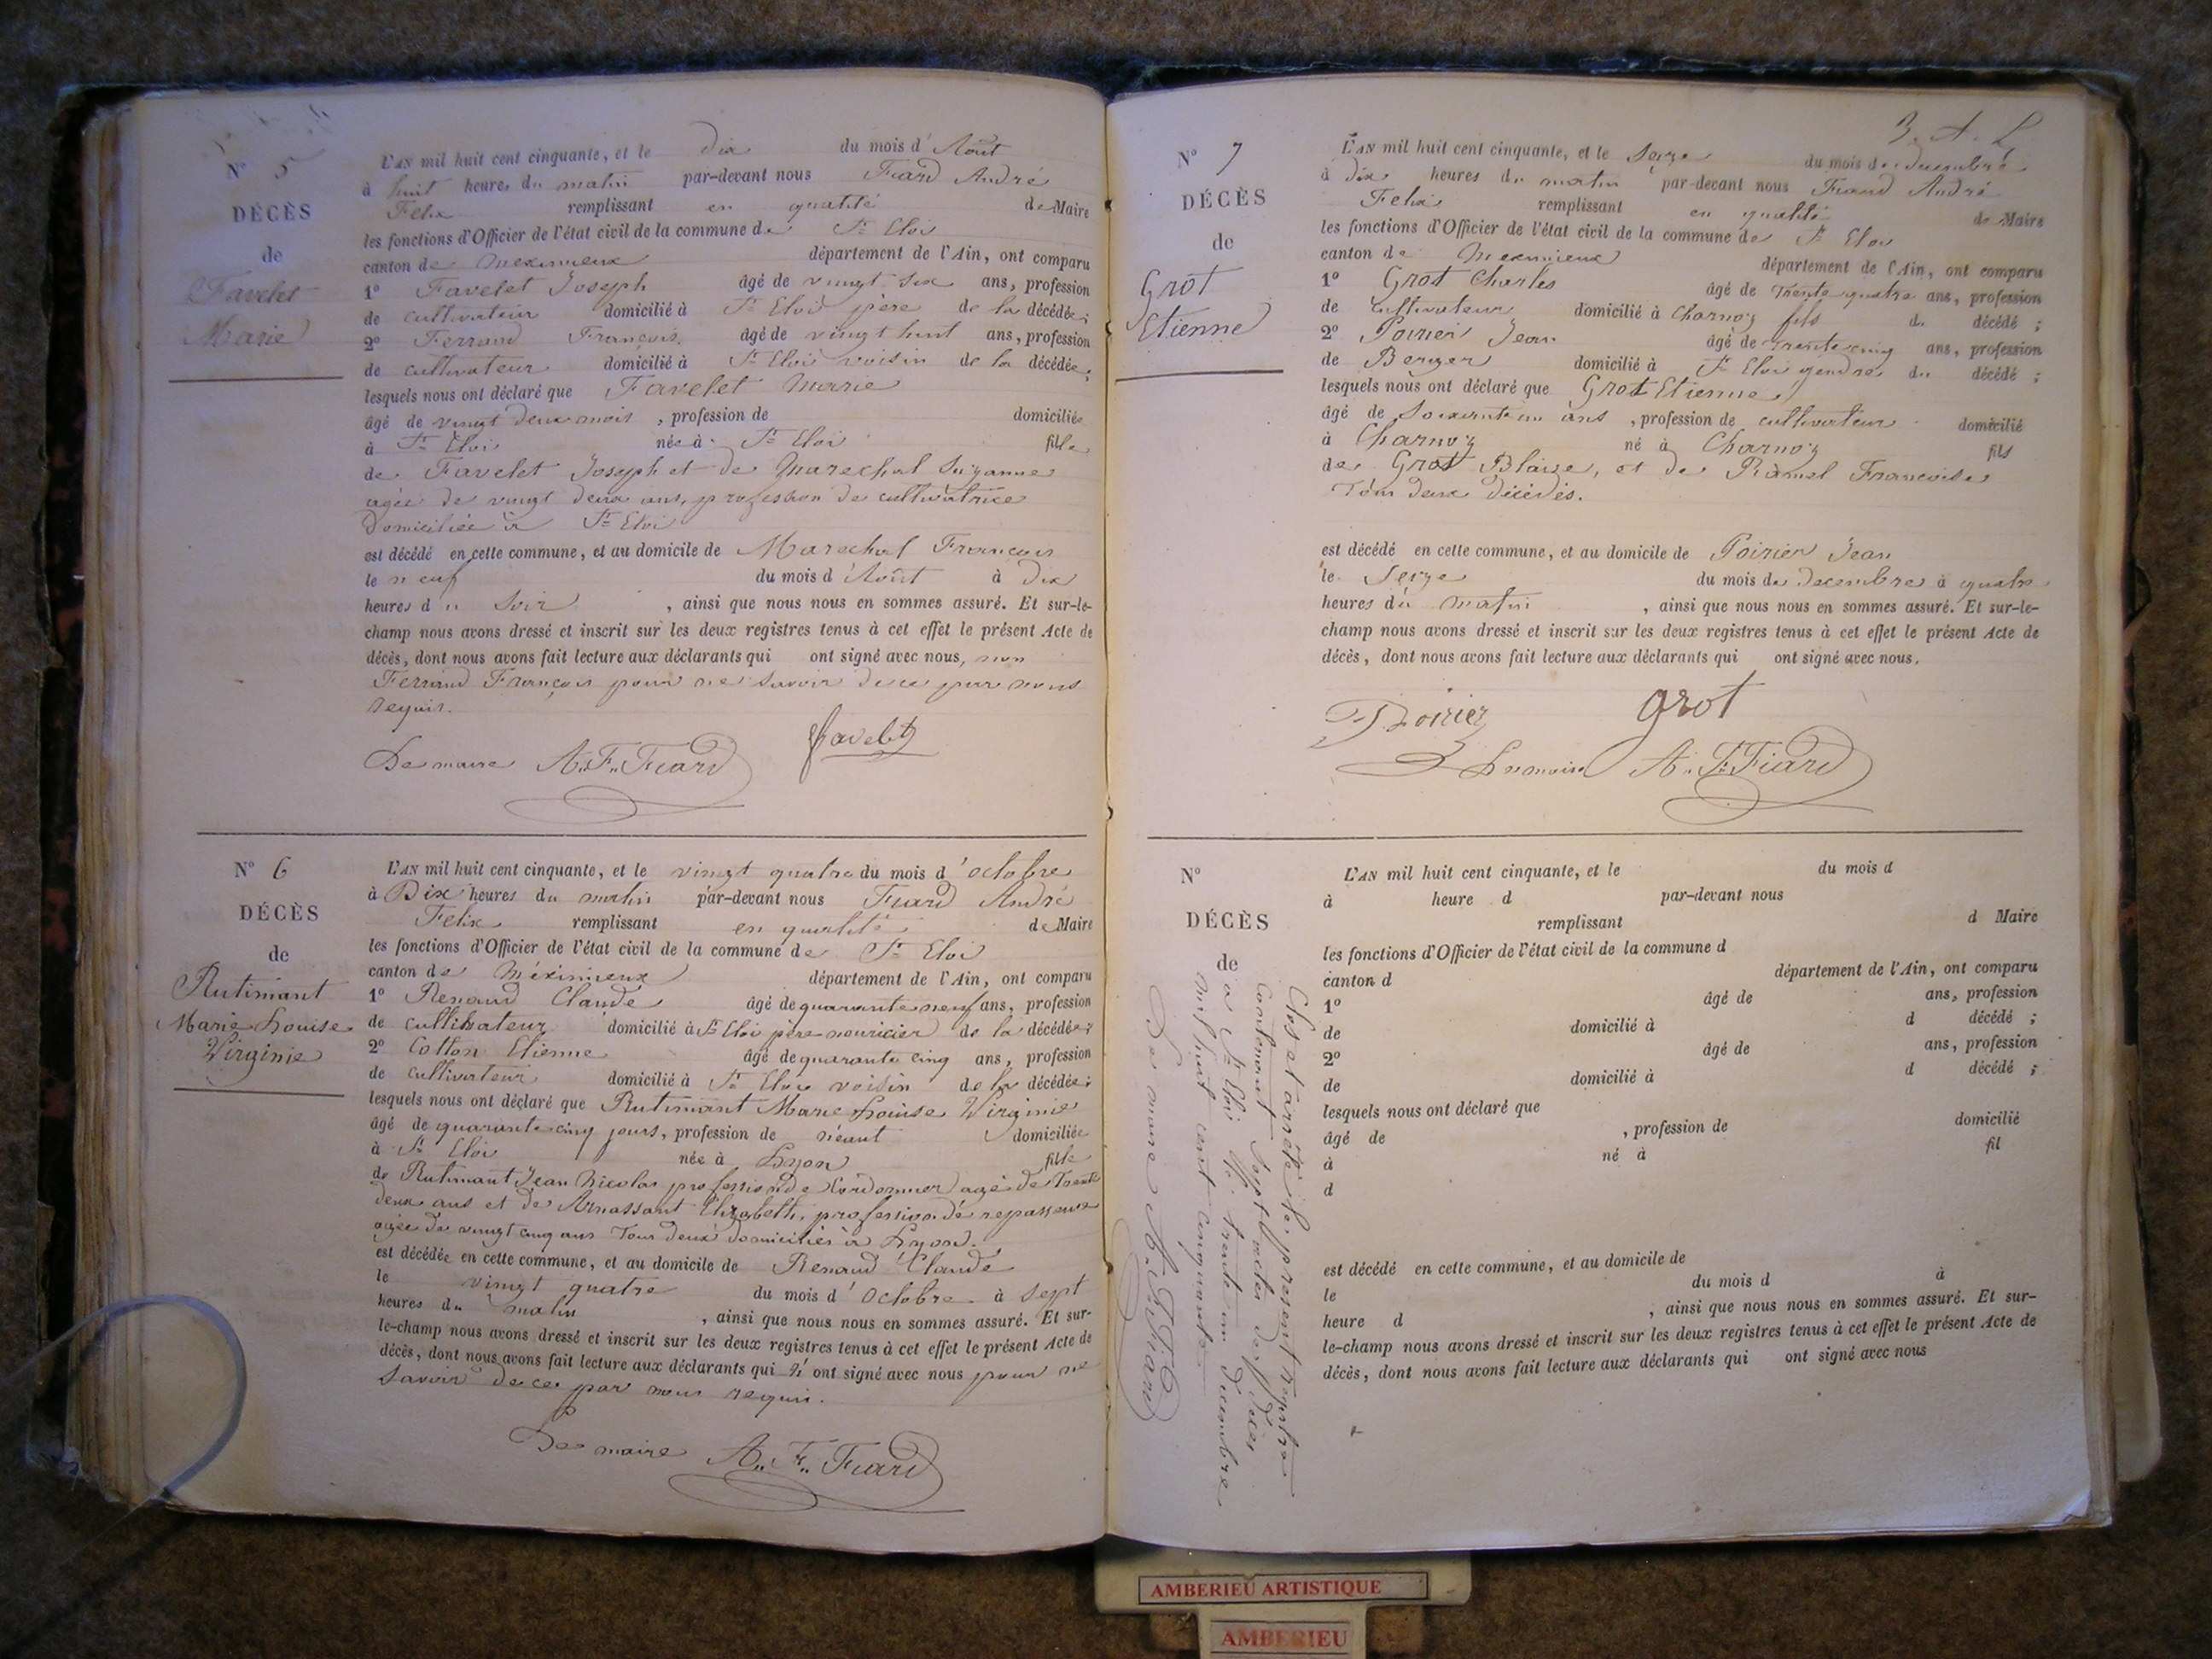 N° 5
DÉCÈS
de
Favelet
Marie
L'AN mil huit cent cinquante, et le dix du mois d'Août
à huit heures du matin par-devant nous Fiard André
Felix remplissant en qualité de Maire
les fonctions d'Officier de l'état civil de la commune de St Eloi
canton de Meximieux département de l'Ain, ont comparu
1° Favelet Joseph âgé de vingt six ans, profession
de cultivateur domicilié à St Eloi père de la décédée;
2° Ferrand François âgé de vingt huit ans, profession
de cultivateur domicilié à St Eloi voisin de la décédée;
lesquels nous ont déclaré que Favelet Marie
âgé de vingt deux mois, profession de domiciliée
à St Eloi née à St Eloi fille
de Favelet Joseph et de Marechal Suzanne
agée de vingt deux ans, profession de cultivatrice
Domiciliée à St Eloi
est décédé en cette commune, et au domicile de Marechal François
le neuf du mois d'Août à dix
heures du soir, ainsi que nous nous en sommes assuré. Et sur-le-
champ nous avons dressé et inscrit sur les deux registres tenus à cet effet le présent Acte de
décès, dont nous avons fait lecture aux déclarants qui ont signé avec nous, non
Ferrand François pour ne savoir de ce par nous
requis.
Le maire A.F. Fiard Favelet
N° 6
DÉCÈS
de
Rutimant
Marie Louise
Virginie
L'AN mil huit cent cinquante, et le vingt quatre du mois d'octobre
à Dix heures du matin par-devant nous Fiard André
Felix remplissant en qualité de Maire
les fonctions d'Officier de l'état civil de la commune de St Eloi
canton de Méximieux département de l'Ain, ont comparu
1° Renaud Claude âgé de quarante neuf ans, profession
de cultivateur domicilié à St Eloi père nouricier de la décédée;
2° Cotton Etienne âgé de quarante cinq ans, profession
de cultivateur domicilié à St Eloi voisin de la décédée;
lesquels nous ont déclaré que Rutimant Marie Louise Virginie
âgé de quarante cinq jours, profession de néant domiciliée
à St Eloi née à Lyon fille
de Rutimant Jean Nicolas profession de Cordonnier agé de Trente
deux ans et de Arnassant Elizabeth, profession de repasseuse
agée de vingt cinq ans Tous deux domiciliés à Lyon.
est décédée en cette commune, et au domicile de Renaud Claude
le vingt quatre du mois d'octobre à sept
heures du matin, ainsi que nous nous en sommes assuré. Et sur-
le-champ nous avons dressé et inscrit sur les deux registres tenus à cet effet le présent Acte de
décès, dont nous avons fait lecture aux déclarants qui n'ont signé avec nous pour ne
savoir de ce par nous requis.
Le maire A.. F.. Fiard
3. A. L
N° 7
DÉCÈS
de
Grot
Etienne
L'AN mil huit cent cinquante, et le seize du mois de decembre
à dix heures du matin par-devant nous Fiard André
Felix remplissant en qualité de Maire
les fonctions d'Officier de l'état civil de la commune de St Eloi
canton de Meximieux département de l'Ain, ont comparu
1° Grot Charles âgé de trente quatre ans, profession
de cultivateur domicilié à Charnoz fils du décédé;
2° Poirier Jean âgé de trente cinq ans, profession
de Berger domicilié à St Eloi gendre du décédé;
lesquels nous ont déclaré que Grot Etienne
âgé de soixante un ans, profession de cultivateur domicilié
à Charnoz né à Charnoz fils
de Grot Blaise, et de Ramel Francoise
Tous deux décédés.
est décédé en cette commune, et au domicile de Poirier Jean
le seize du mois de decembre à quatre
heures du matin, ainsi que nous nous en sommes assuré. Et sur-le-
champ nous avons dressé et inscrit sur les deux registres tenus à cet effet le présent Acte de
décès, dont nous avons fait lecture aux déclarants qui ont signé avec nous.
Poirier Grot
Le maire A. F. Fiard
N°
DÉCÈS
de
L'AN mil huit cent cinquante, et le du mois d
à heure d par-devant nous
remplissant d Maire
les fonctions d'Officier de l'état civil de la commune d
canton d département de l'Ain, ont comparu
1° âgé de ans, profession
de domicilié à d décédé;
2° âgé de ans, profession
de domicilié à d décédé;
lesquels nous ont déclaré que
âgé de, profession de domicilié
à né à fil
d
est décédé en cette commune, et au domicile de
le du mois d à
heure d, ainsi que nous nous en sommes assuré. Et sur-
le-champ nous avons dressé et inscrit sur les deux registres tenus à cet effet le présent Acte de
décès, dont nous avons fait lecture aux déclarants qui ont signé avec nous
Clos et arrêté le présent registre
contenant sept actes de décès,
a St Eloi le trente un decembre
mil huit cent cinquante
Le maire A. F. Fiard
AMBERIEU ARTISTIQUE
AMBERIEU